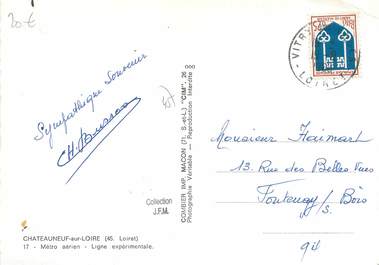 20 €
VITRY
LOIRET
Sympathique Souvenir
COMBIER IMP. MACON (71. S.-et-L.) "CIM" 26 000
Photographie Véritable - Reproduction Interdite
Monsieur Haimart
13. Rue des Belles Vues
Fontenay/s. Bois
Collection
J.F.M.
CHATEAUNEUF-sur-LOIRE (45. Loiret)
17 - Métro aérien - Ligne expérimentale.